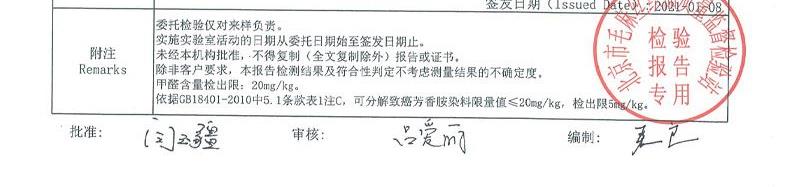 签发日期（Issued Date）：2021-01-08
附注
Remarks
委托检验仅对来样负责。
实施实验室活动的日期从委托日期始至签发日期止。
未经本机构批准，不得复制（全文复制除外）报告或证书。
除非客户要求，本报告检测结果及符合性判定不考虑测量结果的不确定度。
甲醛含量检出限：20mg/kg。
依据GB18401-2010中5.1条款表1注C，可分解致癌芳香胺染料限量值≤20mg/kg，检出限5mg/kg。
检验
报告
专用
批准：
审核：吕爱丽
编制：